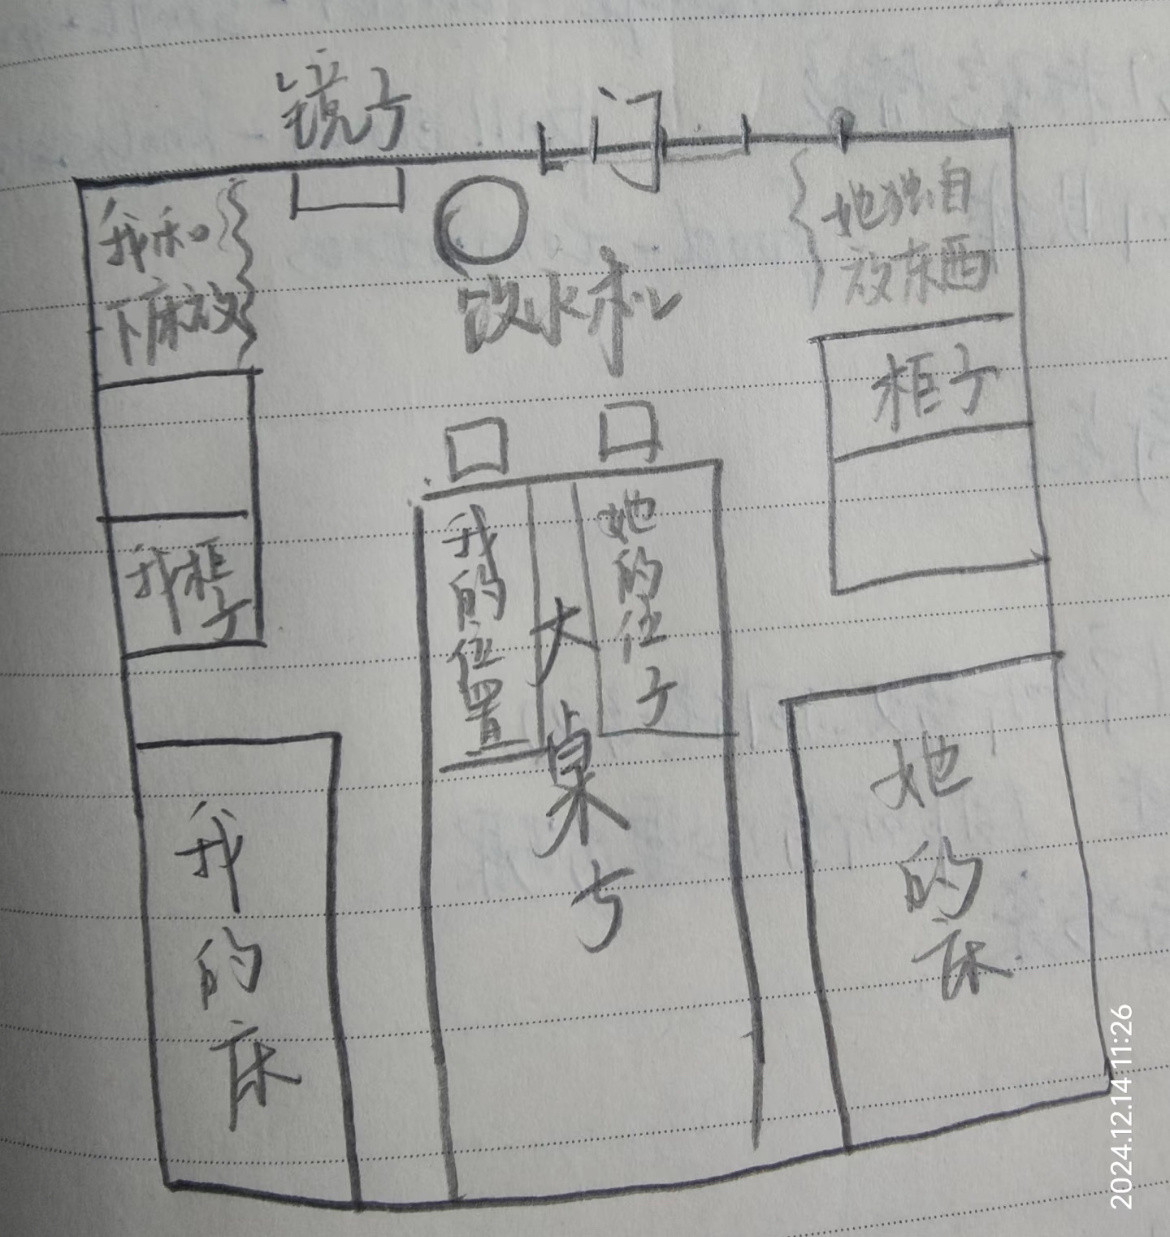 镜子
门
我和
下床放
她独自
放东西
饮水机
柜子
我柜子
我的位置
大桌子
她的位子
我的床
她的床
2024.12.14 11:26